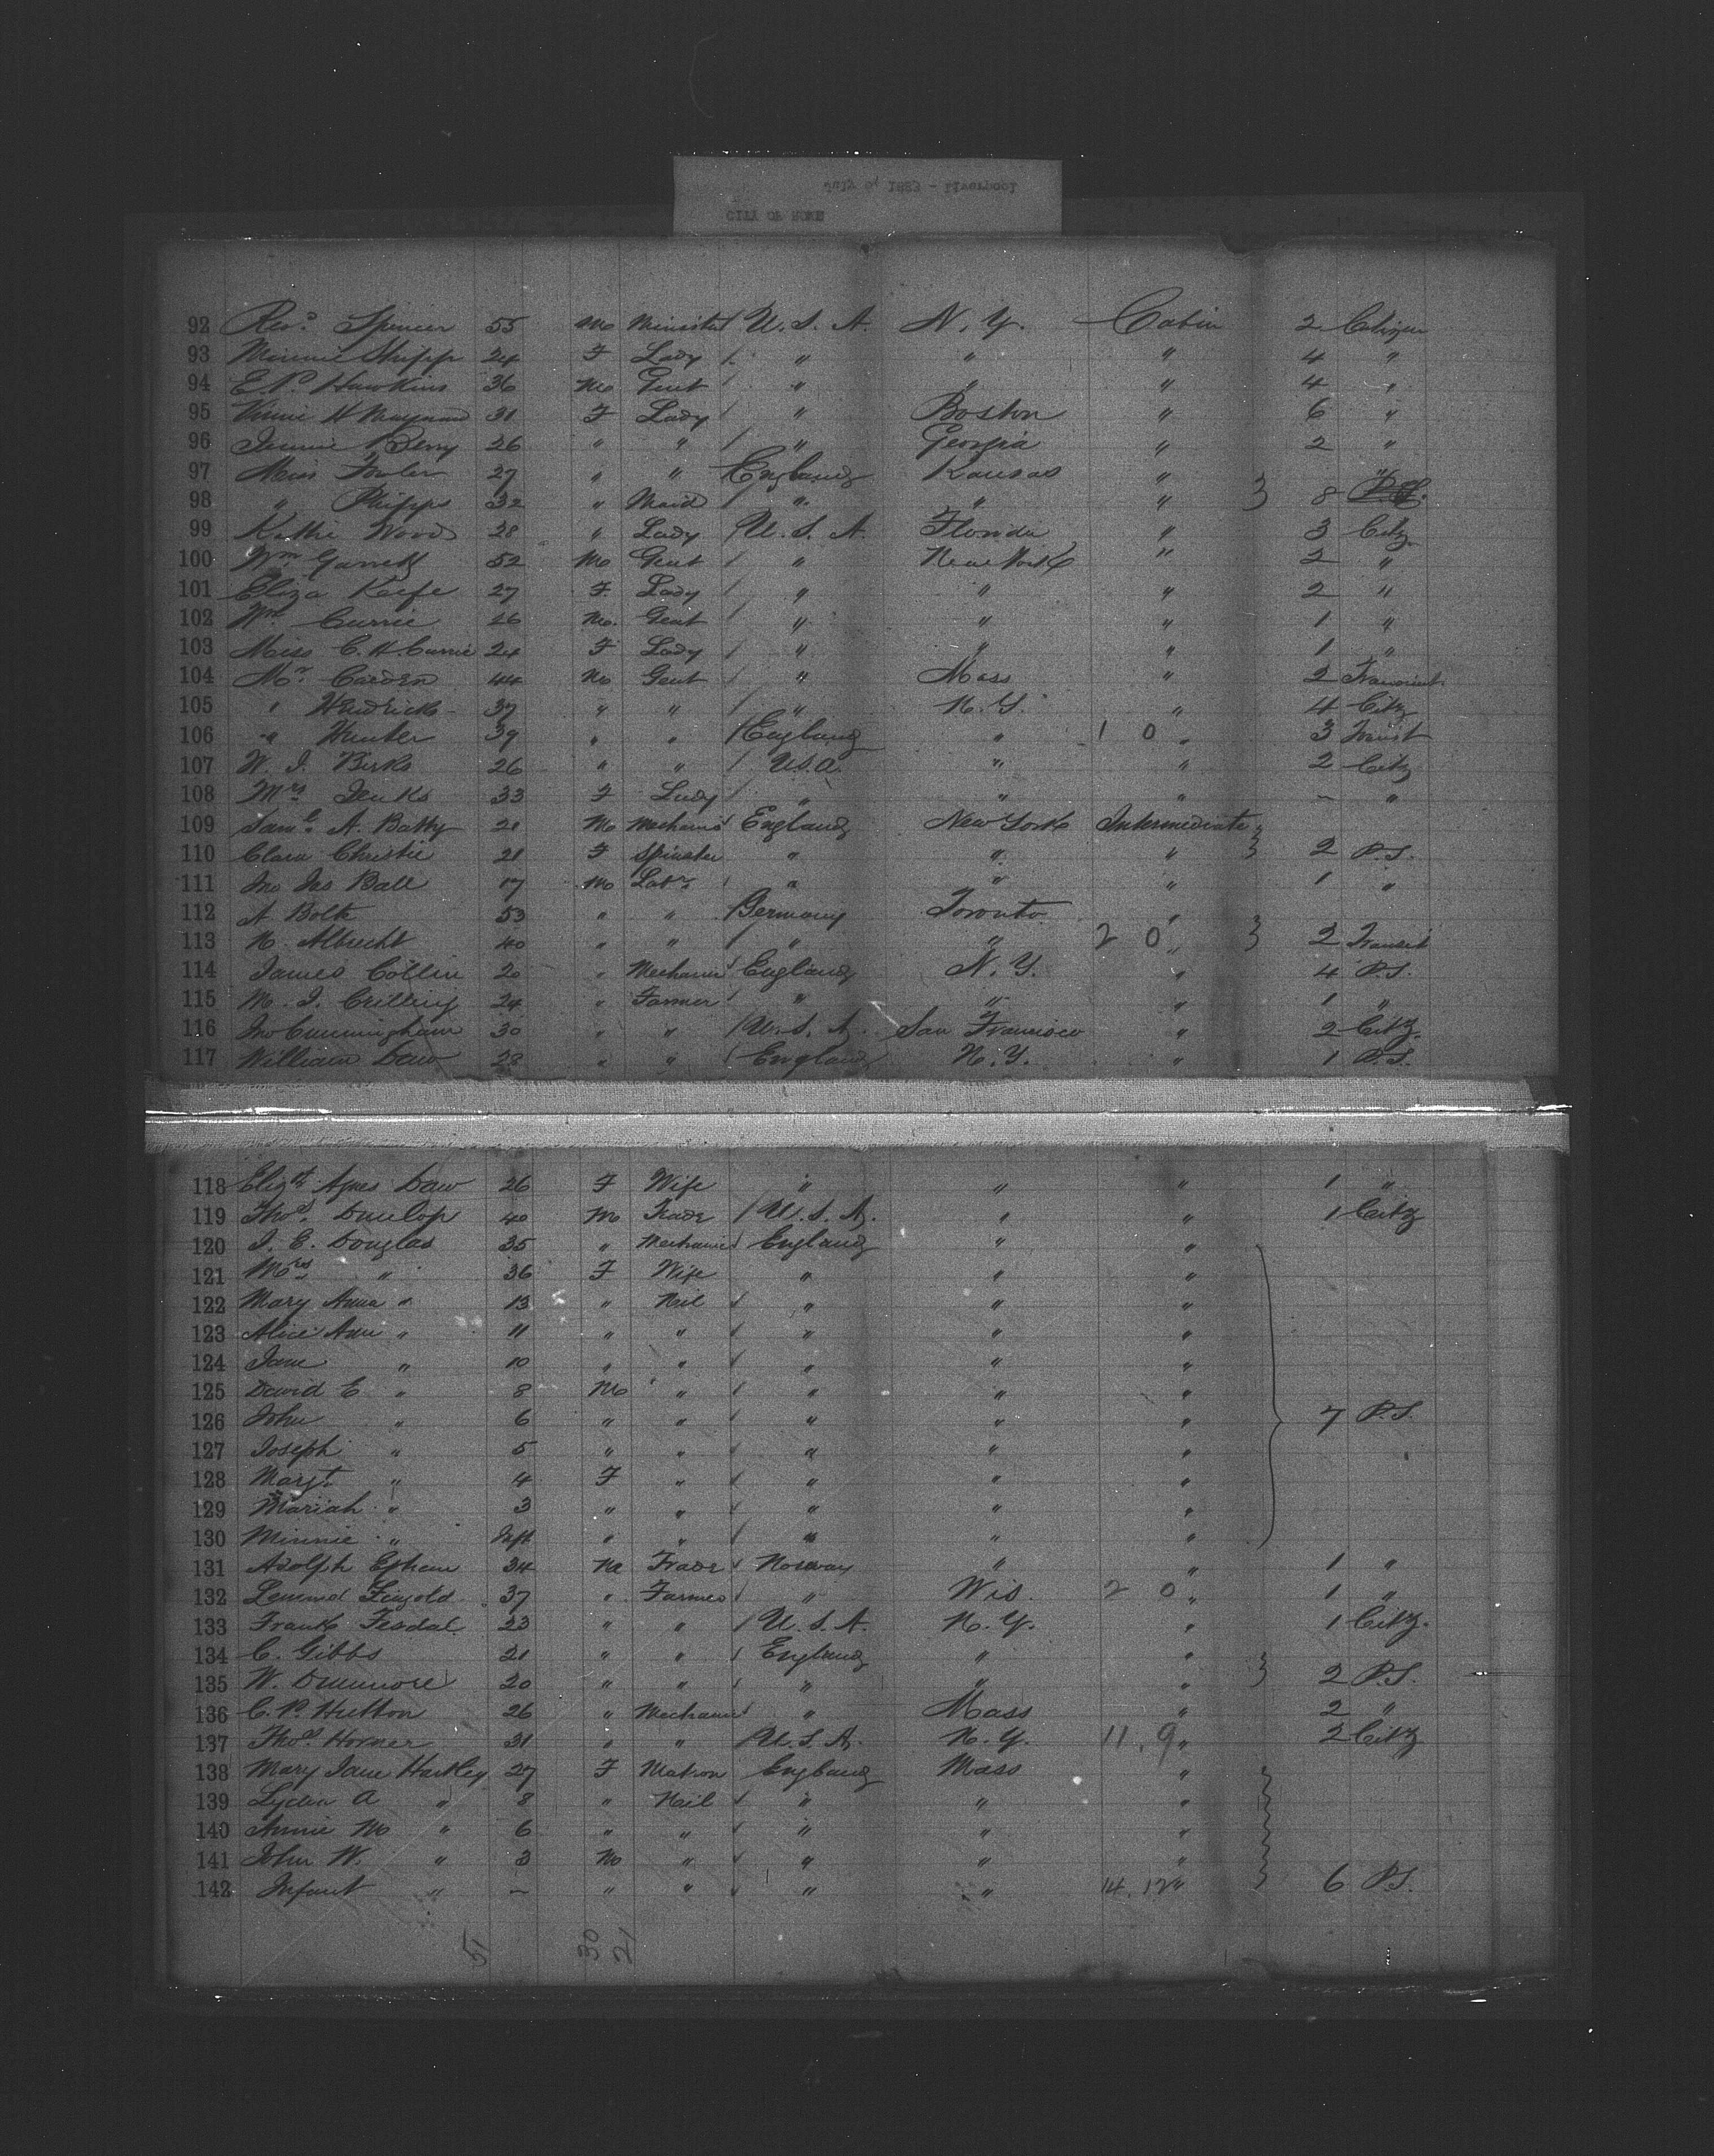 July 6, 1883 - Liverpool
CITY OF ROME
92 Revd Spencer 55 M Minister / U.S.A. N.Y. Cabin 2 Citizen
93 Minnie Shipp 24 F Lady / " " " 4 "
94 E P Hawkins 36 M Gent / " " " 4 "
95 H Maynard 31 F Lady / " Boston " 6 "
96 Jennie Berry 26 " " / " Georgia " 2 "
97 Miss Fowler 27 " " / England Kansas " "
98 " Phipps 32 " Maid / " " " 8 P.S.
99 Kathie Wood 28 " Lady / U.S.A. Florida " 3 Citz
100 Wm Garrett 52 M Gent / " New York " 2 "
101 Eliza Keefe 27 F Lady / " " " 2 "
102 Wm Currie 26 M. Gent / " " " 1 "
103 Miss C. H. Currie 24 F Lady / " " " 1 "
104 Mr Carden 44 M Gent / " Mass " 2 Transient
105 " Hendricks 37 " " / " N.Y. " 4 Citz
106 " Hunter 39 " " / England " 1 0 " 3 Tourist
107 W. J. Birks 26 " " / U.S.A. " " 2 Citz
108 Mrs Jenks 33 F Lady / " " " – "
109 Saml A. Batty 21 M Mechanic / England New York Intermediate
110 Clara Christie 21 F Spinster " " " 2 P.S.
111 Jno Jas Ball 17 M Labr / " " " 1 "
112 A Bolt 53 " " / Germany Toronto "
113 N. Albrecht 40 " " / " " 2 0 " 2 Transit
114 James Collin 20 " Mechanic / England N.Y. " 4 P.S.
115 M. J. Crilling 24 " Farmer / " " " 1 "
116 Jno Cunningham 30 " " / U.S.A. San Francisco " 2 Citz.
117 William Daw 28 " " / England N.Y. " 1 P.S.
118 Elizth Agnes Daw 26 F Wife " " " 1 "
119 Thos. Dunlop 40 M Trade / U.S.A. " " 1 Citz
120 J. E. Douglas 35 " Mechanic / England " "
121 Mrs " 36 F Wife " " "
122 Mary Anna " 13 " Nil / " " "
123 Alice Ann " 11 " " / " " "
124 Jane " 10 " " / " " "
125 David E " 8 M " / " " "
126 John " 6 " " / " " " 7 P.S.
127 Joseph " 5 " " / " " "
128 Margt. " 4 F " / " " "
129 Mariah " 3 " " / " " "
130 Minnie " Inft " " / " " "
131 Adolph Ephem 34 M Trade / Norway " " 1 "
132 37 " Farmer / " Wis. 2 0 " 1 "
133 Frank Fesdal 23 " " / U.S.A. N.Y. " 1 Citz.
134 C. Gibbs 21 " " / England " "
135 W. Dunmore 20 " " / " " " 2 P.S.
136 C. P. Hutton 26 " Mechanic / " Mass " 2 "
137 Thos. Horner 31 " " / U.S.A. N.Y. 11. 9 " 2 Citz
138 Mary Jane Hartley 27 F Matron England Mass "
139 Lydia A " 8 " Nil / " " "
140 Annie M " 6 " " / " " "
141 John W. " 3 M " / " " "
142 Infant " – " " / " " 14. 12 " 6 P.S.
51 30 21